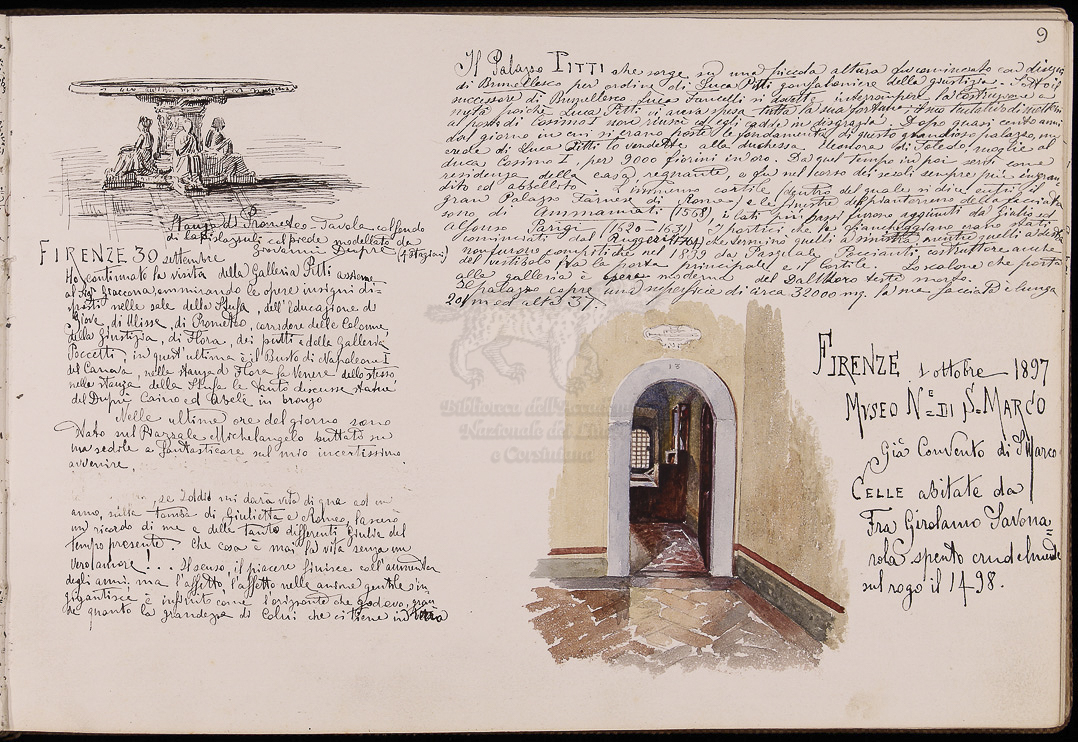 9
Il Palazzo PITTI che sorge su una piccola altura fu cominciato con disegni
di Brunellesco per ordine di Luca Pitti gonfaloniere della giustizia
successore di Brunellesco Luca Fancelli si dovette interrompere la costruzione a
metà poiché Luca Pitti vi aveva spesa tutta la sua fortuna
ai posti di Cosimo I ed egli cadde in disgrazia. Dopo quasi cento anni
dal giorno in cui si erano poste le fondamenta di questo grandioso palazzo, un
erede di Luca Pitti lo vendette alla duchessa Eleonora di Toledo, moglie al
duca Cosimo I, per 9000 fiorini in oro. Da quel tempo in poi servì come
residenza della casa regnante, e fu nel corso dei secoli sempre più ingran
dito ed abbellito. L'immenso cortile (dentro del quale si dice entri il
gran Palazzo Farnese di Roma) e le finestre del pianterreno della facciata
sono di Ammannati (1568), i lati più bassi furono aggiunti da Giulio ed
Alfonso Parigi (1620-1631) I portici che la fiancheggiano
cominciati dal Ruggeri
non furono compiti che nel 1839 da Pasquale Poccianti, costruttore anche
del vestibolo tra la porta principale e il cortile. Lo scalone che porta
alla galleria è opera moderna del
Il palazzo copre una superficie di circa 32000 mq. la sua facciata è lunga
201 m ed alta 37.
Stanza di Prometeo - Tavola colfondo
di lapislazzuli col piede modellato da
Giovanni Dupré (4 Stagioni)
FIRENZE 30 settembre
Ho continuato la visita della Galleria Pitti assieme
al Sig. Giaccone, ammirando le opere insigni di-
sposti nelle sale della Stufa, dell'Educazione di
Giove, di Ulisse, di Prometeo, corridore delle Colonne,
della Giustizia, di Flora, dei putti e della Galleria
Poccetti, in quest'ultima è il Busto di Napoleone I
del Canova, nella stanza di Flora la Venere dello stesso
nella stanza della Stufa le tanto discusse statue
del Dupré Caino ed Abele in bronzo
Nelle ultime ore del giorno sono
stato sul Piazzale Michelangelo buttato su
una sedile a fantasticare sul mio incertissimo
avvenire.
se Iddio mi darà vita di qua ad un
anno, sulla tomba di Giulietta e Romeo, lascerò
un ricordo di me e delle tanto differenti Giulie del
tempo presente. Che cosa è mai la vita senza un
vero amore! . . . Il senso, il piacere finisce coll'aumentar
degli anni, ma l'affetto, l'affetto nelle anime gentili s'in
gigantisce è infinito come l'orizzonte che godevo, gran
de quanto la grandezza di Colui che ci tiene in terra
13
Biblioteca dell'Accademia
Nazionale dei Lincei
e Corsiniana
FIRENZE 1 ottobre 1897
MUSEO Nle DI S. MARCO
Già Convento di S. Marco
CELLE abitate da
Fra Girolamo Savona
rola spento crudelmente
sul rogo il 1498.